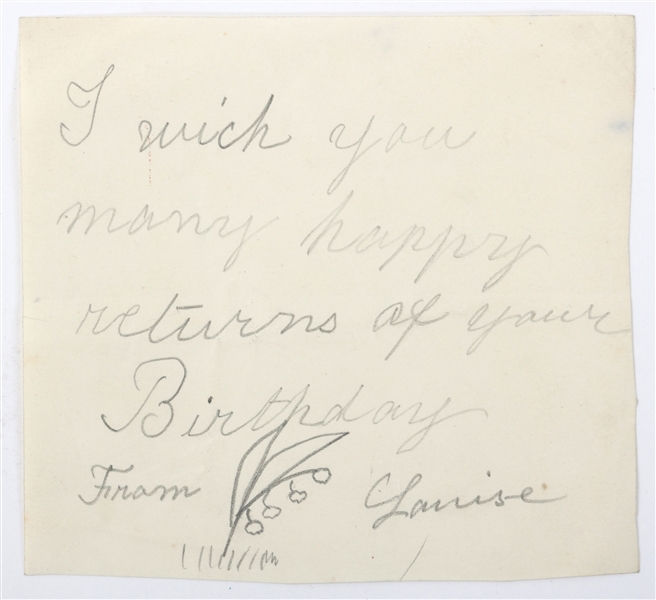 I wich you
many happy
returns of your
Birthday
From Louise